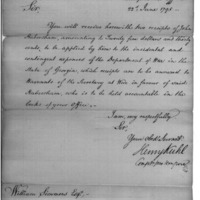 Sir,
22d June 1798
You will receive herewith two receipts of John
Habersham, amounting to Twenty four dollars and twenty
cents, to be applied by him to the incidental and
contingent expences of the Department of War in the
State of Georgia, which receipts are to be
Warrants of the Secretary at War in favor of said
Habersham, who is to be held accountable in the
books of your Office.
I am, very respectfully
Sir,
Your Obdt Servant
Henry Kuhl
William Simmons Esqr.